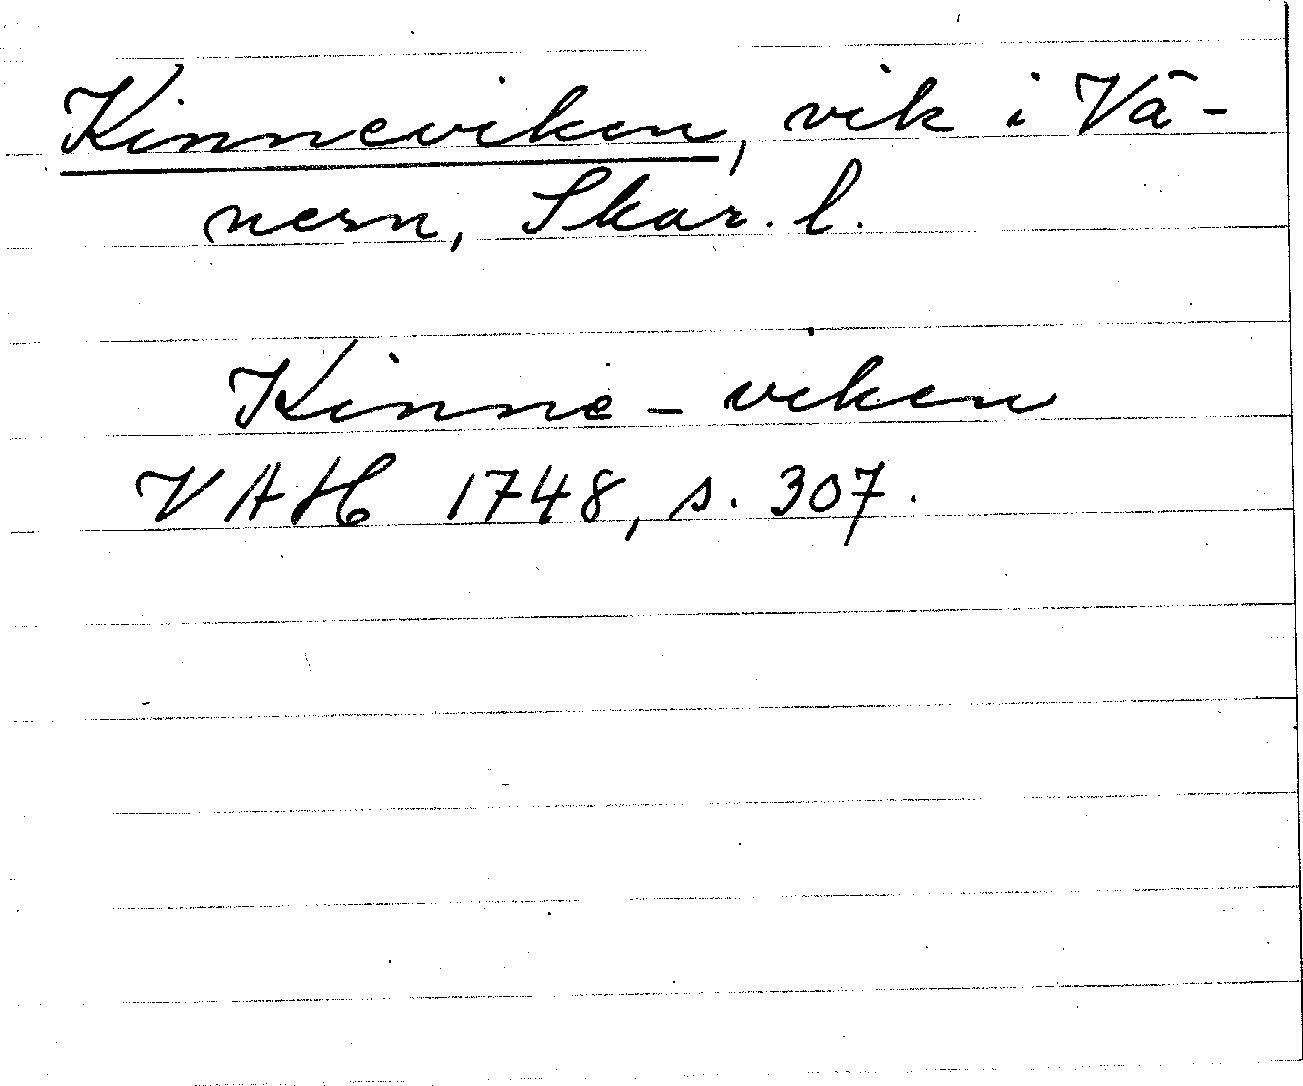 Kinneviken, vik i Vä-
nern, Skar. l.
Kinne-viken
VAH 1748, s. 307.